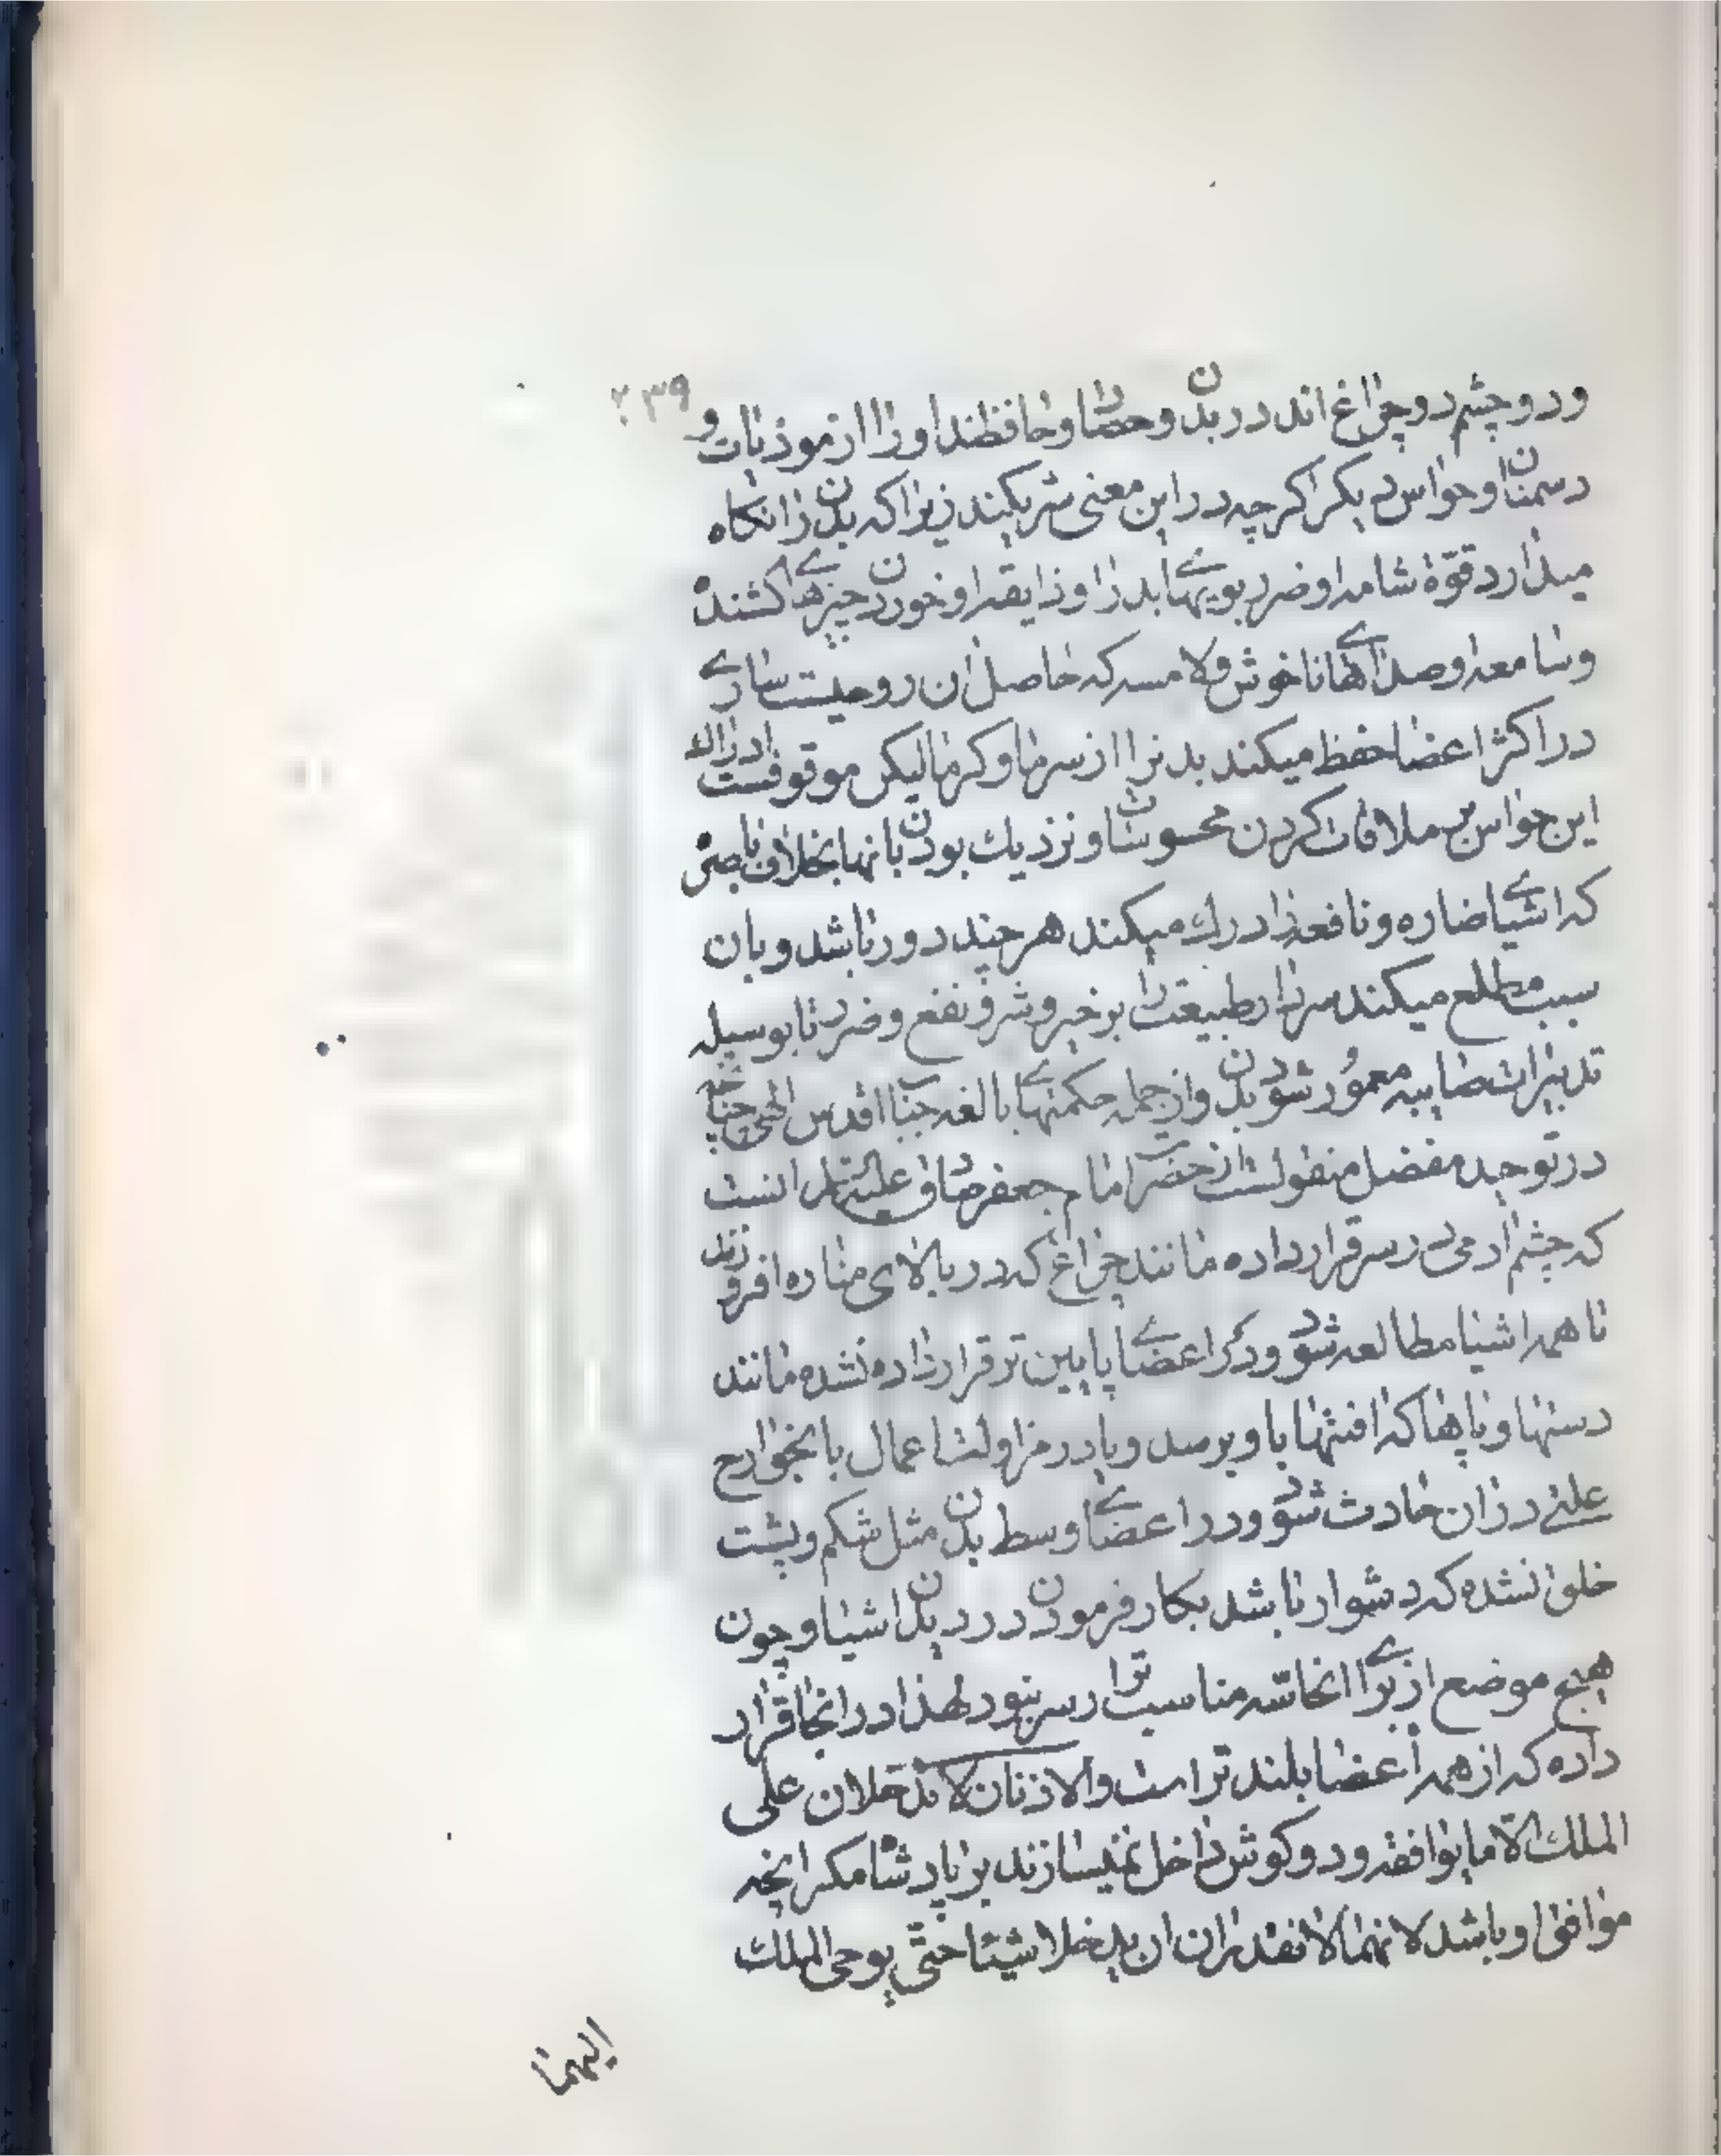 ۲۳۹
و دو چشم دو چراغ اند در بدن و حصارا و حافظند او را از موذیات و
دشمنان و حواس دیکر اکر چه در این معنی شریکند زیرا که بدن را نکاه
میدارد قوّة شامه او ضرر بویهای بد را و ذایقه او خوردن چیزهای کشنده
و سامعه او صداهای ناخوش و لامسه که حاصل ان روحیست ساری
در اکثر اعضا حفظ میکند بدنرا از سرما و کرما لیکن موقوفست ادراک
این حواس بر ملاقات کردن محسوسات و نزدیک بودن بانها بخلاف باصره
که اشیای ضاره و نافعه را درک میکند هر چند دور باشد و بان
سبب مطلع میکند سردار طبیعت را بر خیر و شر و نفع و ضرر تا بوسیله
تدبیرات صایبه معمور شود بدن و از جمله حکمتهای بالغه جناب اقدس الهی چنانچه
در توحید مفضل منقولست از حضرت امام جعفر صادق علیه السلام انست
که چشم ادمی در سر قرار داده مانند چراغ که در بالای مناره افروزند
تا همه اشیا مطالعه شود و دکر اعضای پایین تر قرار داده نشده مانند
دستها و پاها که افتها باو برسد و یا در مزاولت اعمال بانجوارح
علتی در ان حادث شود و در اعضای وسط بدن مثل شکم و پشت
خلق نشده که دشوار باشد بکار فرمودن در دیدن اشیا و چون
هیچ موضع از برای انحاسّه مناسب تر از سر نبود لهذا در انجا قرار
داده که از همه اعضا بلند تر است والاذنان لا تدخلان علی
الملك الا ما یوافقه و دو کوش داخل نمیسازند بر پادشاه مکر انچه
موافق او باشد لانهما لا تقدران ان یدخلا شیئا حتی یوحی الملك
الیهما